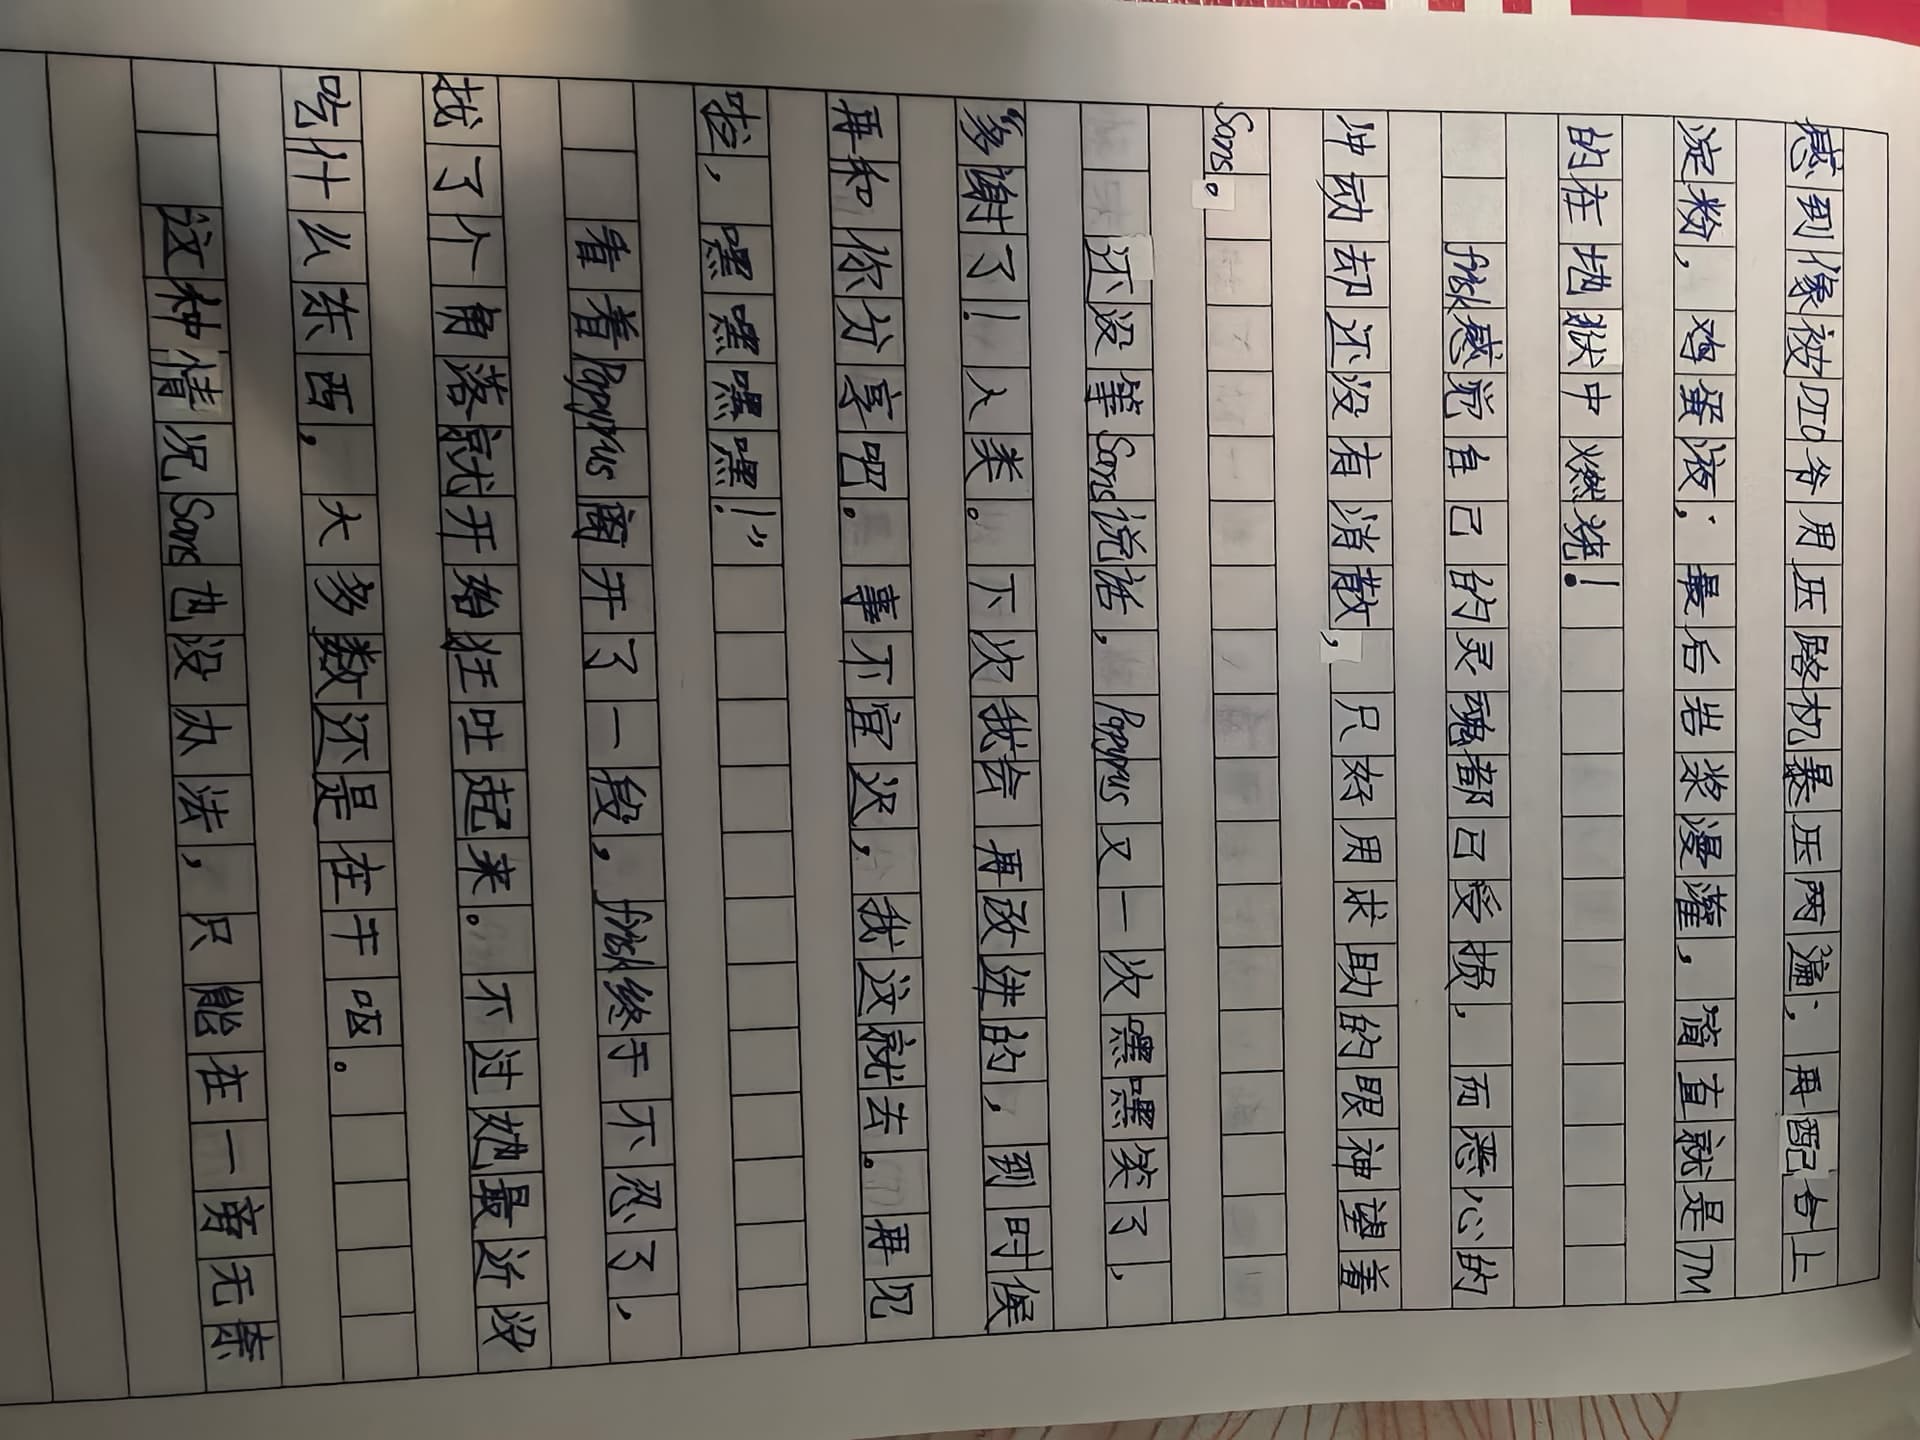 感到像被DIO爷用压路机暴压两遍；再配合上
淀粉，鸡蛋液；最后岩浆漫灌，简直就是TM
的在地狱中燃烧！
frisk感觉自己的灵魂都已受损，而恶心的
冲动却还没有消散，只好用求助的眼神望着
Sans。
还没等Sans说话，Papyrus又一次嘿嘿笑了，
“多谢了！人类。下次我会再改进的，到时候
再和你分享吧。事不宜迟，我这就去。再见
啦，嘿嘿嘿嘿！”
看着Papyrus离开了一段，frisk终于不忍了，
找了个角落就开始狂吐起来。不过她最近没
吃什么东西，大多数还是在干呕。
这种情况Sans也没办法，只能在一旁无奈